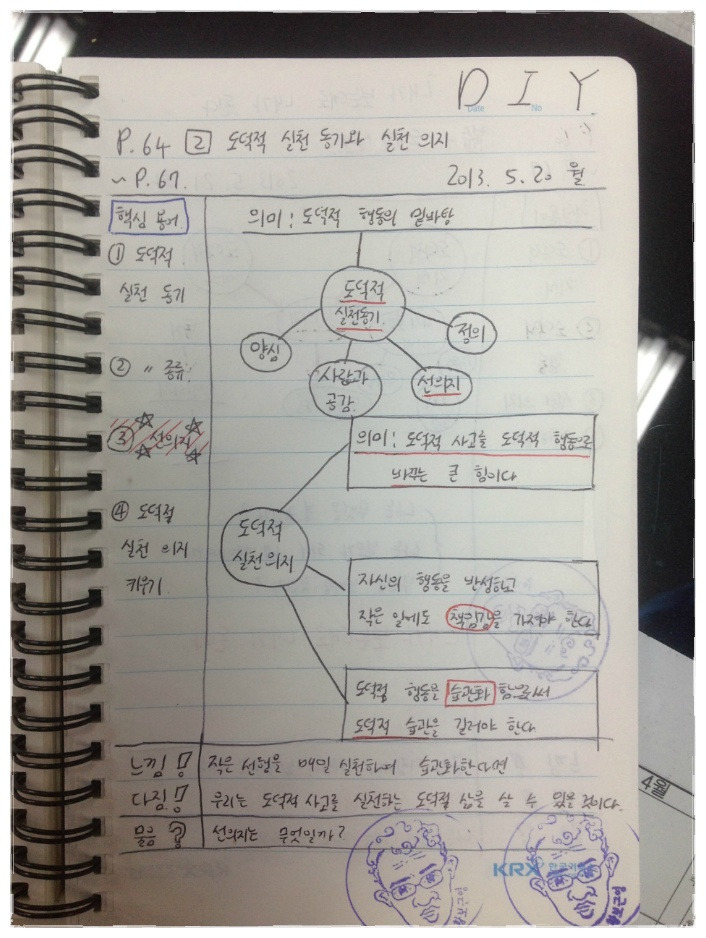 DIY
Date No
P.64 2 도덕적 실천 동기와 실천 의지
~P.67. 2013. 5. 20 월
핵심 용어
의미 : 도덕적 행동의 밑바탕
① 도덕적
실천 동기
도덕적
실천동기
양심
정의
사랑과
공감
선의지
② 〃 종류
③ 선의지
의미 : 도덕적 사고를 도덕적 행동으로
바꾸는 큰 힘이다
④ 도덕적
실천 의지
키우기
도덕적
실천의지
자신의 행동을 반성하고
작은 일에도 책임감을 가져야 한다
도덕적 행동을 습관화 함으로써
도덕적 습관을 길러야 한다
느낌 작은 선행을 매일 실천하여 습관화한다면
다짐 우리는 도덕적 사고를 실천하는 도덕적 삶을 살 수 있을 것이다.
물음 선의지는 무엇일까?
KRX
4월